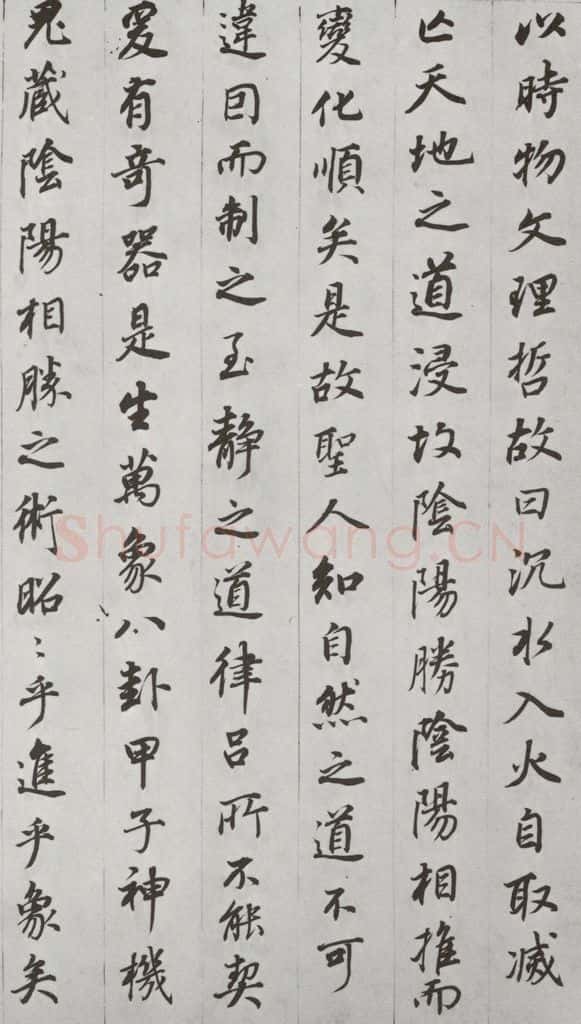 以時物文理哲故曰沉水入火自取滅
亡天地之道浸故陰陽勝陰陽相推而
變化順矣是故聖人知自然之道不可
違因而制之至靜之道律呂所不能契
爰有奇器是生萬象八卦甲子神機
鬼藏陰陽相勝之術昭〻乎進乎象矣
Shufawang.CN